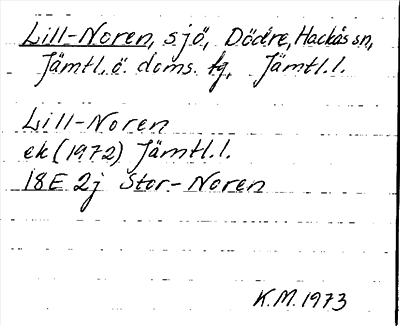 Lill-Noren, sjö, Dödre, Hackås sn,
Jämtl. ö. doms. tg, Jämtl. l.
Lill-Noren
ek (1972) Jämtl. l.
18E 2j Stor-Noren
K.M. 1973